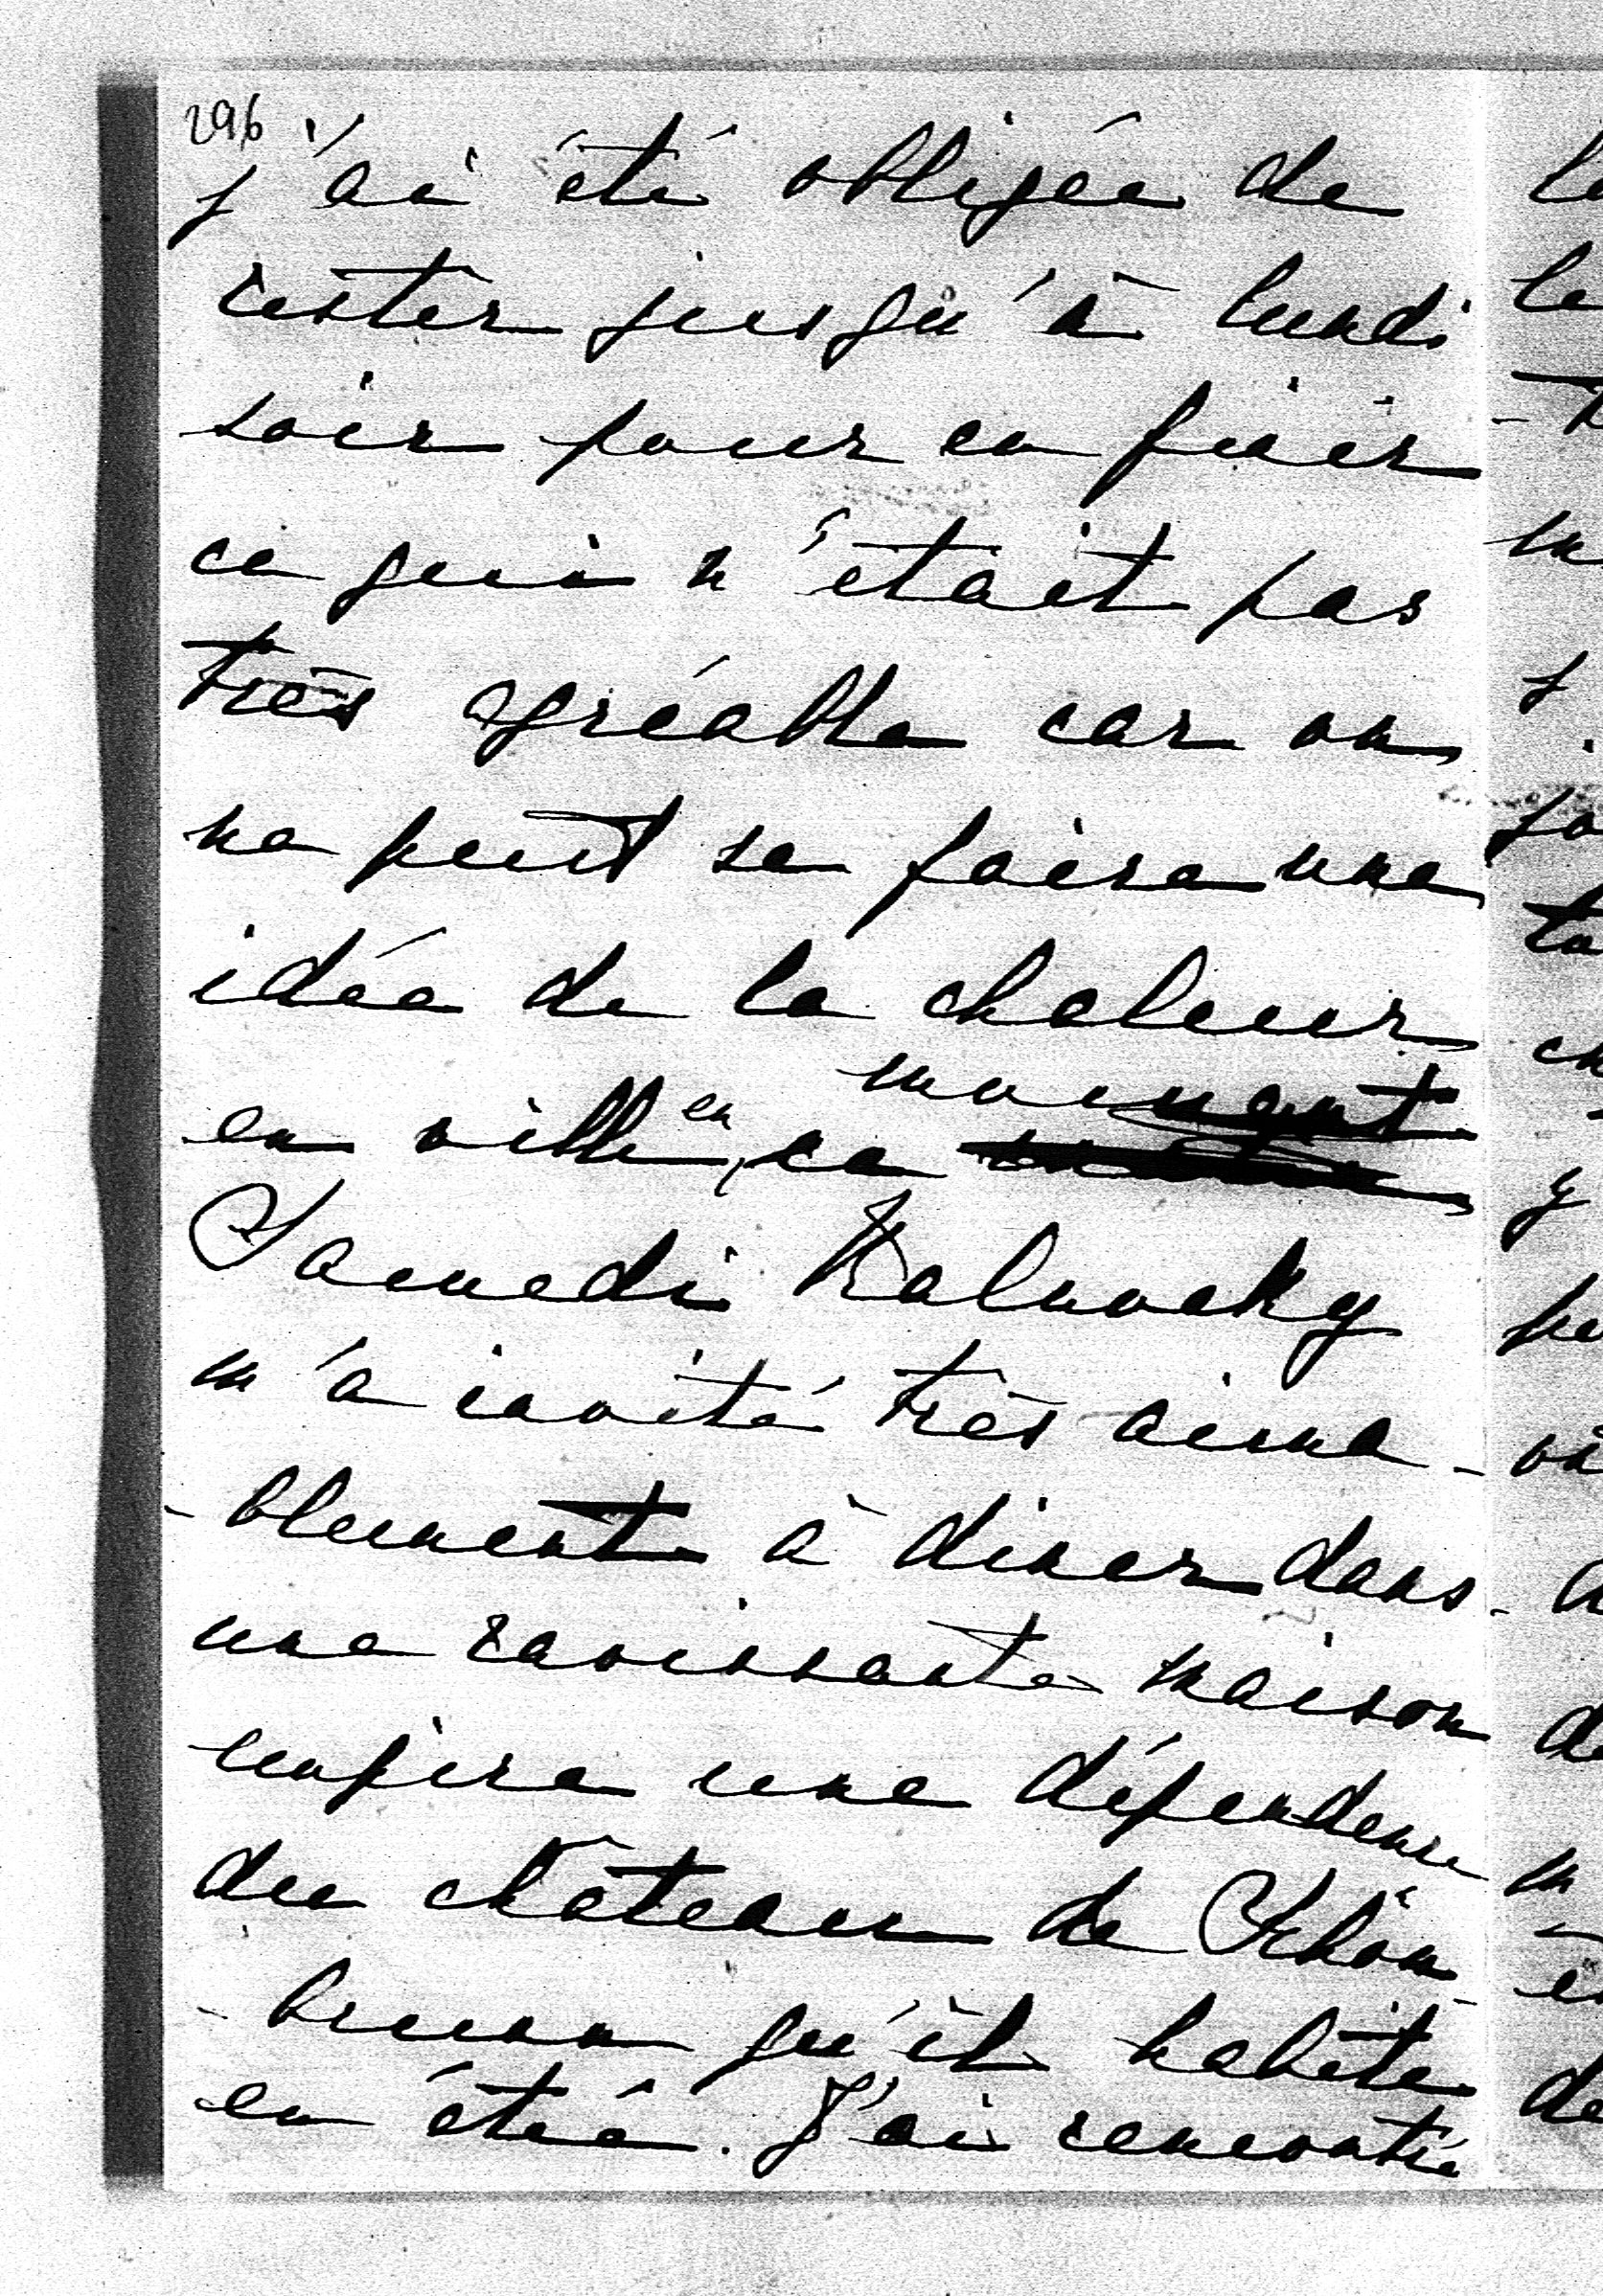 296
j'ai été obligée de
rester jusqu'à lundi
soir pour en finir
ce qui n'était pas
très agréable car on
ne peut se faire une
idée de la chaleur
moment
en ville en ce
Samedi Kalnoky
m'a invité très aima-
-blement à diner dans
une ravissante maison
empire une dépendence
du château de Schön-
-brunn qu'il habite
en été. J'ai rencontré